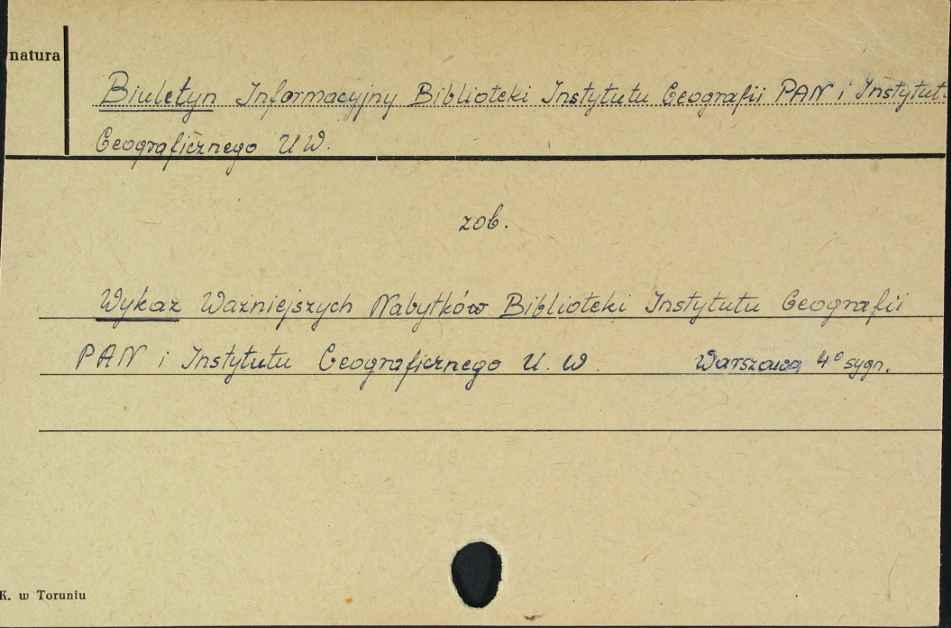 natura
Biuletyn Informacyjny Biblioteki Instytutu Geografii PAN i Instytut.
Geograficznego U W.
zob.
Wykaz Ważniejszych Nabytków Biblioteki Instytutu Geografii
PAN i Instytutu Geograficznego U. W. Warszawa 4° sygn.
K. w Toruniu